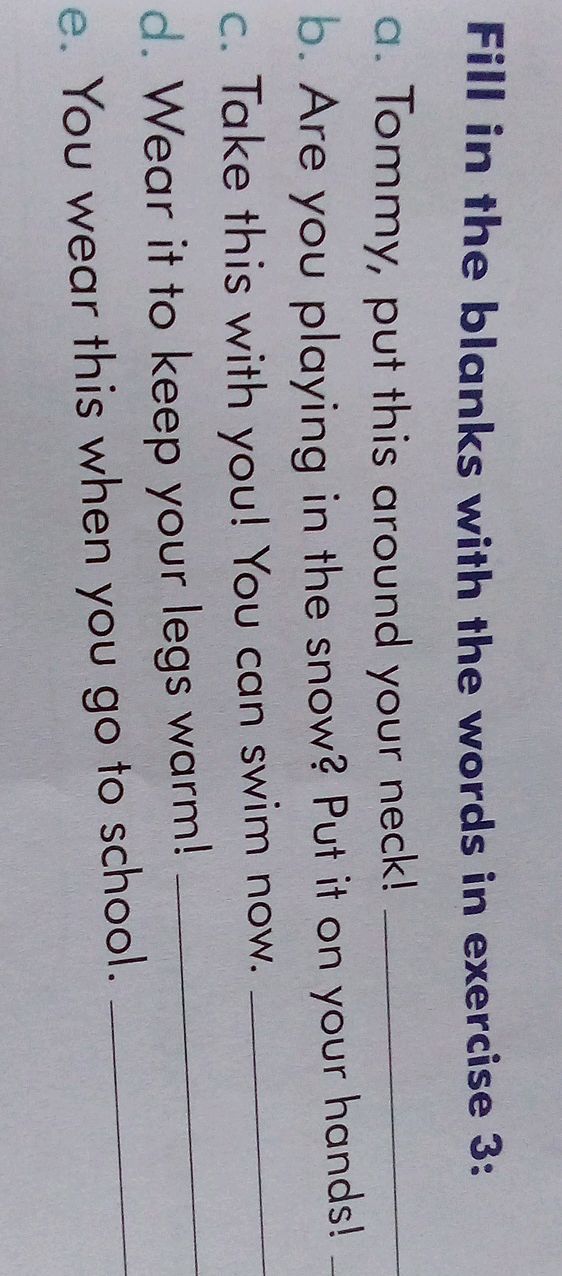 Fill in the blanks with the words in exercise 3:
a. Tommy, put this around your neck!
b. Are you playing in the snow? Put it on your hands!
c. Take this with you! You can swim now.
d. Wear it to keep your legs warm!
e. You wear this when you go to school.